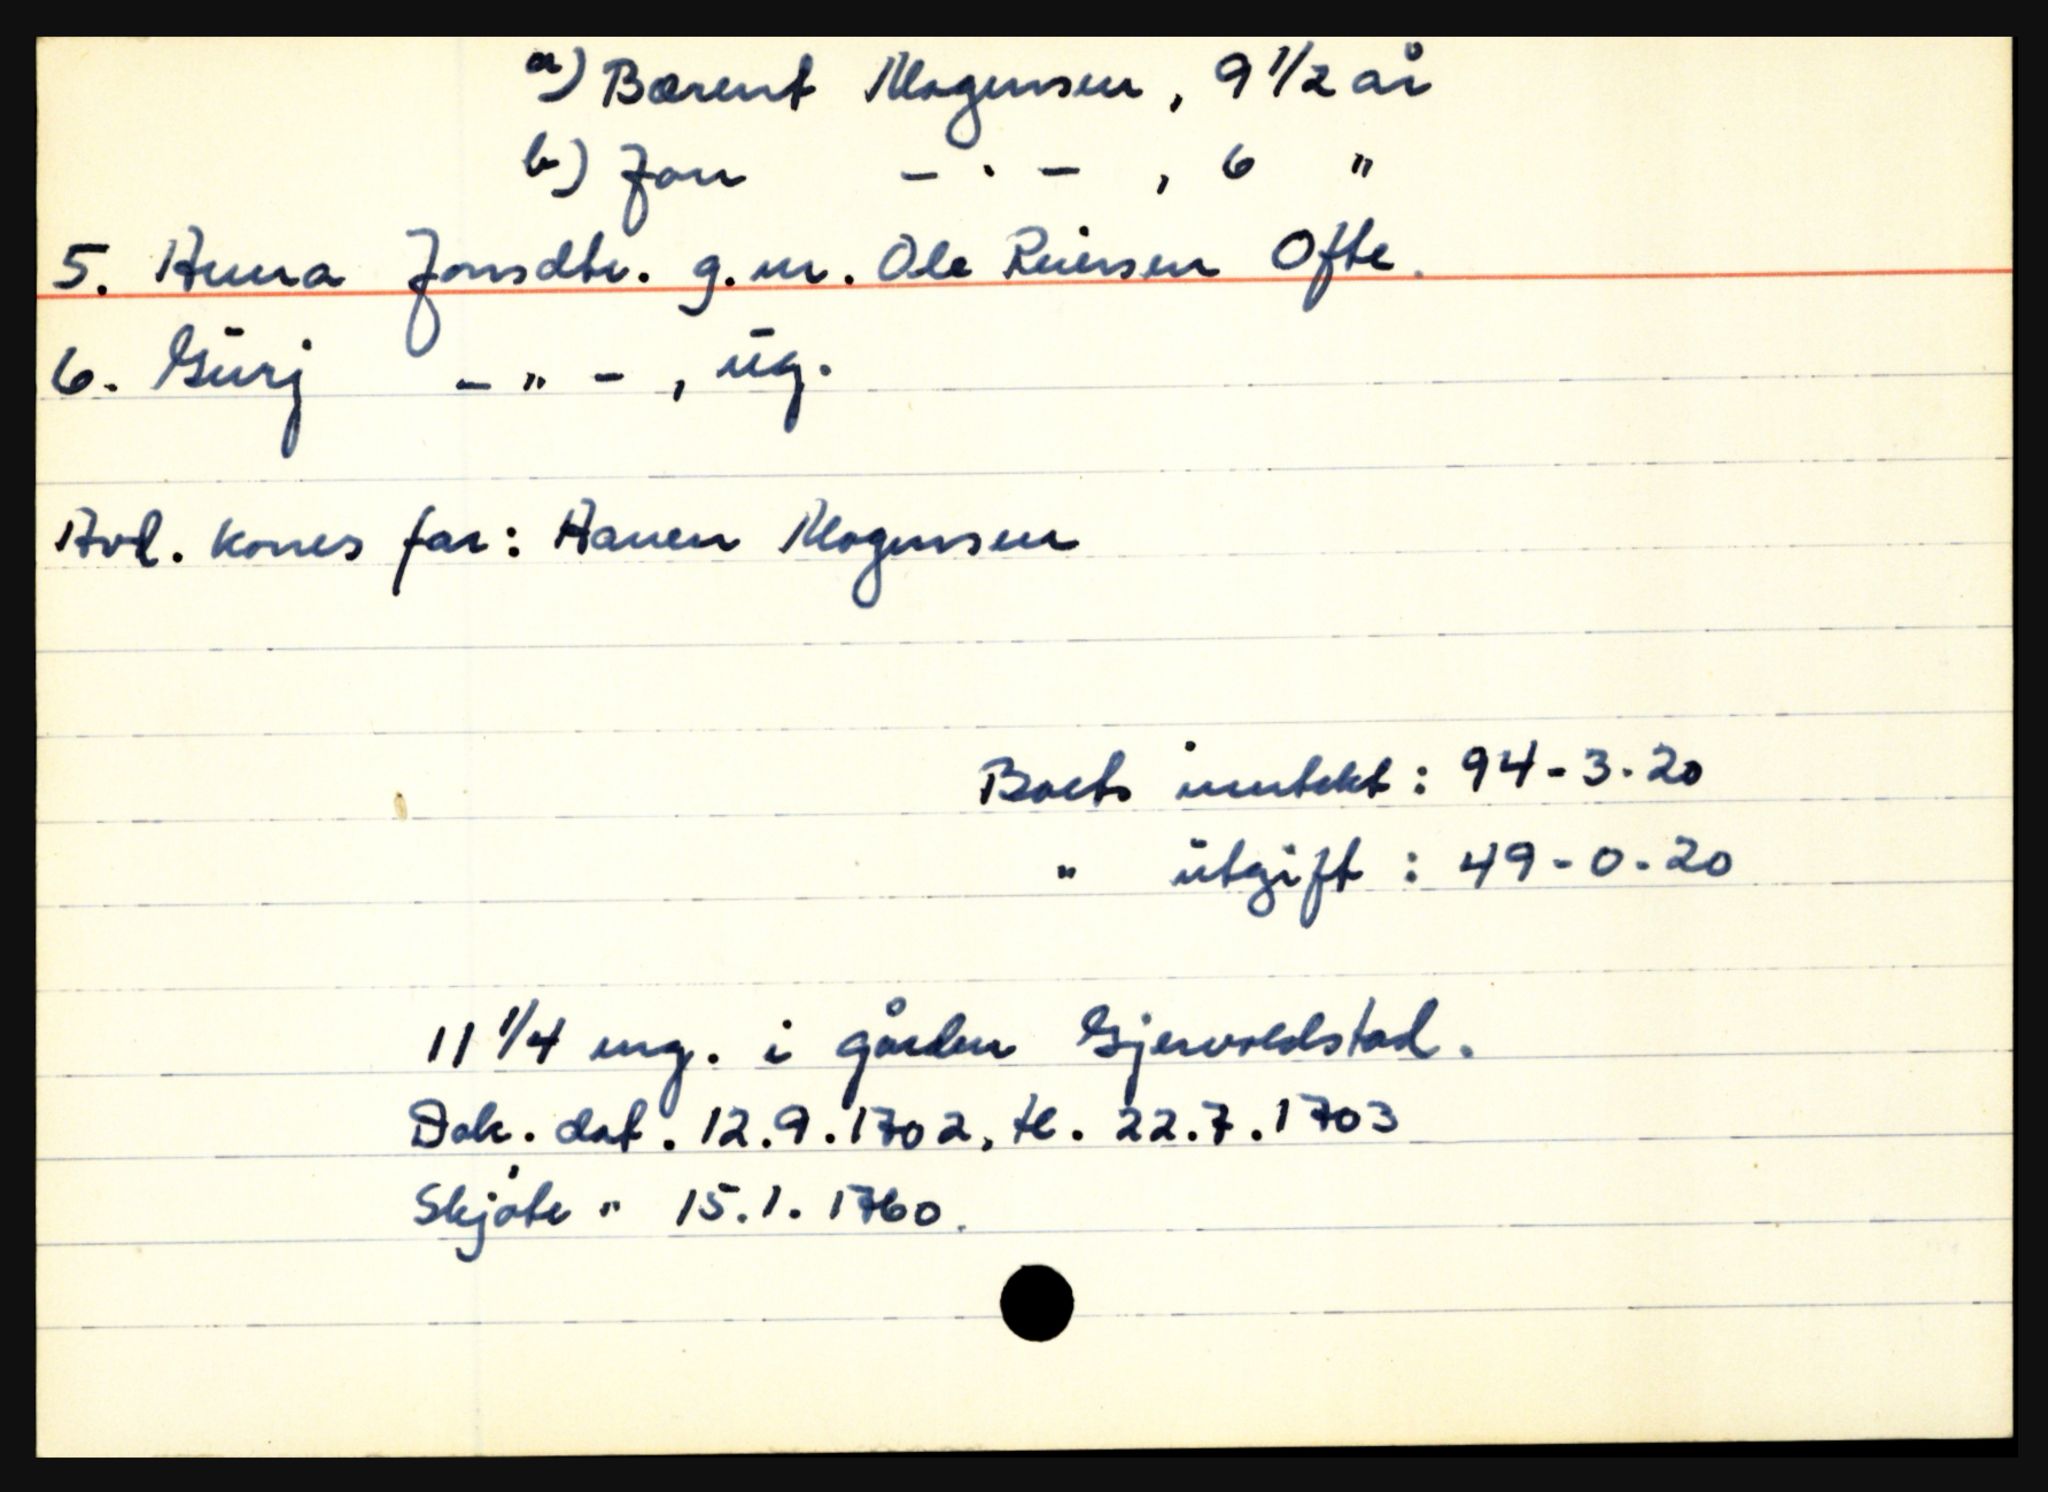 a) Bærent Mogensen, 9 1/2 år
b) Jon - · - , 6 "
5. Anna Jonsdtr. g.m. Ole Reiersen Ofte.
6. Gurj - " - , ug.
Avd. kones far: Aanen Mogensen
Boets inntekt : 94-3-20
" utgift : 49-0-20
11 1/4 mg. i gården Gjervoldstad.
Dok. dat. 12.9.1702, tl. 22.7.1703
Skjøte " 15.1.1760.